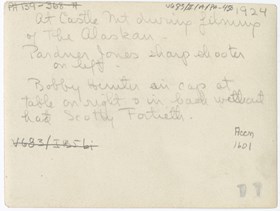 PA 139-368-A
1924
At Castle Mt during filming
of The Alaskan.
Pardner Jones sharp shooter
on left.
Bobby Hunter in cap at
table on right & in back without
hat Scotty
V683/
Accn
1601